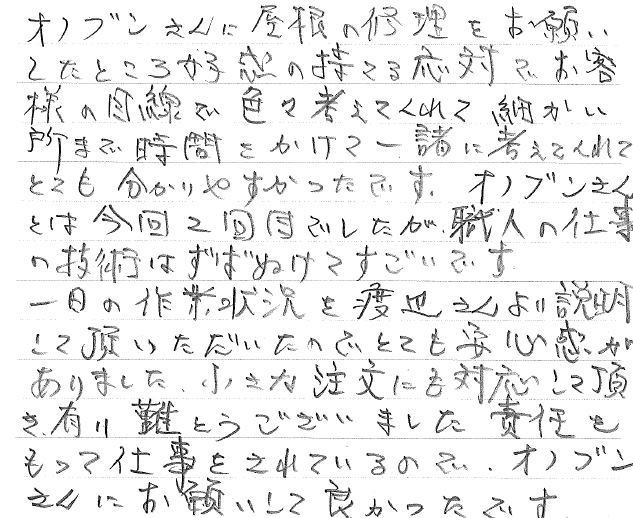 オノブンさんに屋根の修理をお願い
したところ好感の持てる応対でお客
様の目線で色々考えてくれて細かい
所まで時間をかけて一諸に考えてくれて
とても分かりやすかったです。オノブンさん
とは今回2回目でしたが、職人の仕事
の技術はずばぬけてすごいです
一日の作業状況を渡辺さんより説明
して頂いただいたのでとても安心感が
ありました。小さな注文にも対応して頂
き、有り難とうございました責任を
もって仕事をされているので、オノブン
さんにお願いして良かったです。